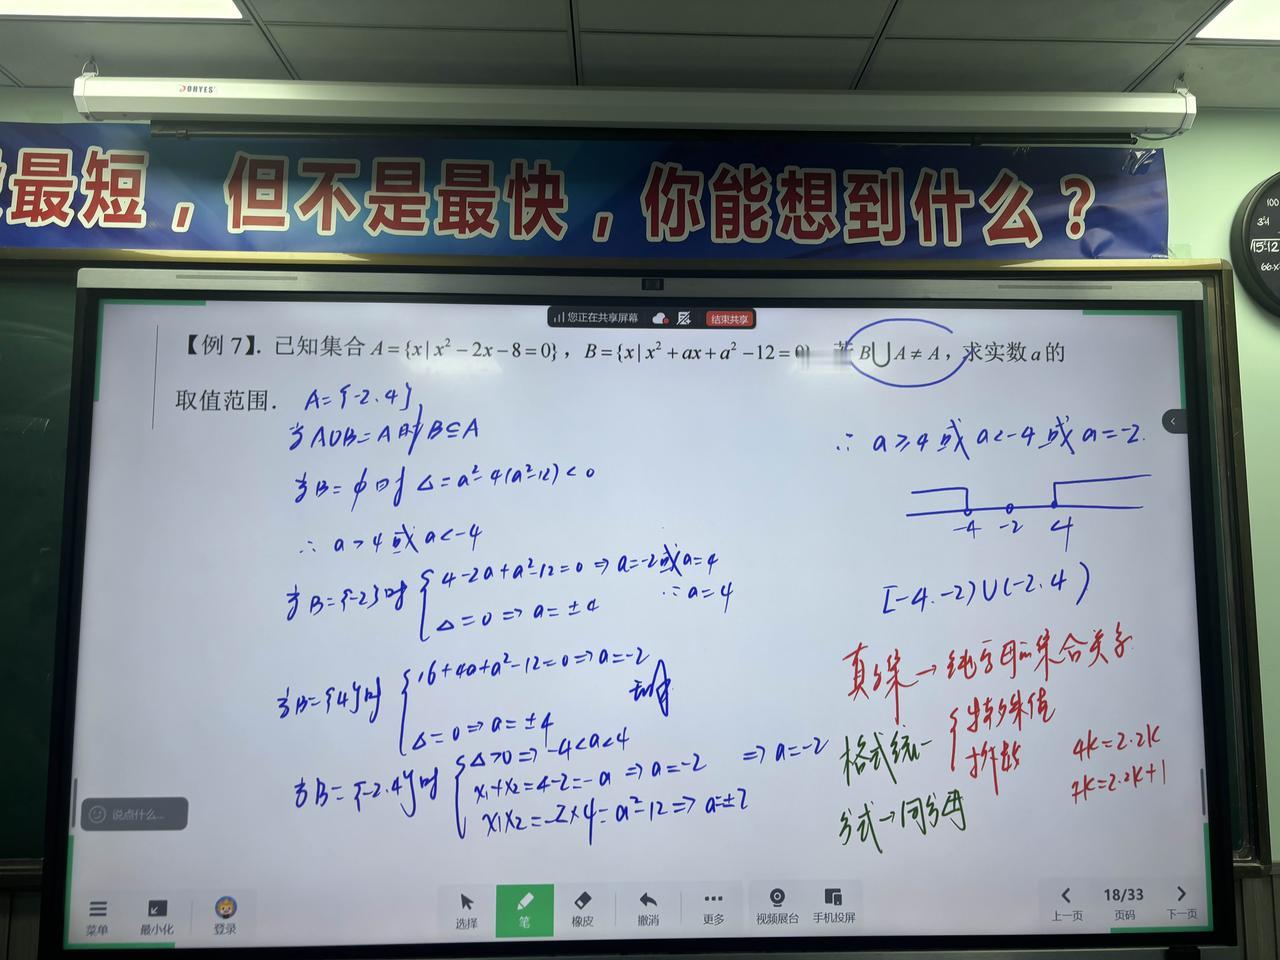 DOHYES
最短，但不是最快，你能想到什么？
15:12
您正在共享屏幕 结束共享
【例 7】. 已知集合 A={x|x²-2x-8=0}，B={x|x²+ax+a²-12=0} 若 B⋃A≠A，求实数a的
取值范围．
A={-2.4}
当A∪B=A时B⊆A
当B=∅时 △=a²-4(a²-12)<0
∴ a>4或a<-4
当B={-2}时 { 4-2a+a²-12=0 ⇒ a=-2或a=4
△=0 ⇒ a=±4 ∴a=4
当B={4}时 { 16+4a+a²-12=0 ⇒ a=-2
△=0 ⇒ a=±4
当B={-2.4}时 { △>0 ⇒ -4<a<4
x₁+x₂=4-2=-a ⇒ a=-2 ⇒ a=-2
x₁x₂=-2×4=a²-12 ⇒ a=±2
∴ a≥4或a<-4或a=-2.
-4 -2 4
[-4.-2)∪(-2.4)
真子集→纯字母的集合关系
{ 特殊值
格式统一
分式→同分母
4k=2·2k
2k+1
说点什么...
菜单 最小化 登录 选择 笔 橡皮 撤消 更多 视频展台 手机投屏 上一页 18/33 页码 下一页